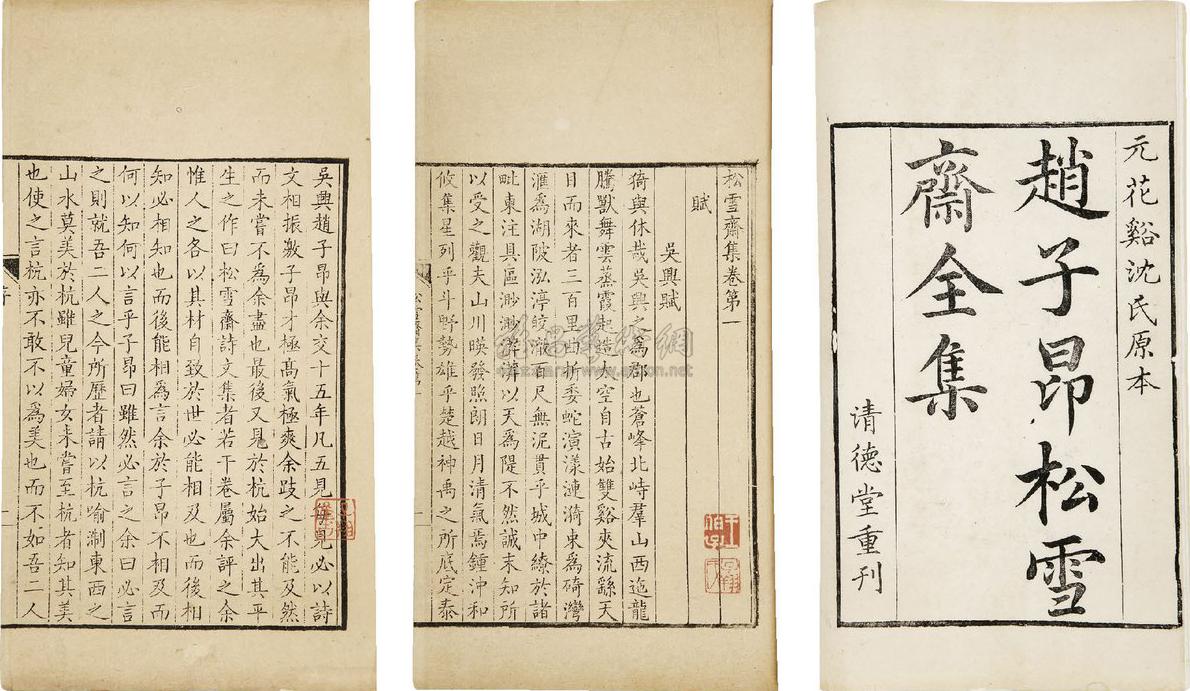 元花谿沈氏原本
趙子昂松雪
齋全集
清德堂重刋
松雪齋集卷第一
賦
吳興賦
猗與休哉吳興之爲郡也蒼峰北峙羣山西迤龍
騰獸舞雲蒸霞起造太空自古始雙谿夾流繇天
目而來者三百里曲折委蛇演漾漣漪東爲碕灣
滙爲湖陂泓渟皎澈百尺無泥貫乎城中繚於諸
毗東注具區渺渺瀰瀰以天爲隄不然誠未知所
以受之觀夫山川暎發照朗日月清氣焉鍾沖和
攸集星列乎斗野勢雄乎楚越神禹之所底定泰
吳興趙子昂與余交十五年凡五見每見必以詩
文相振激子昂才極高氣極爽余跂之不能及然
而未嘗不爲余盡也最後又見於杭始大出其平
生之作曰松雪齋詩文集者若干卷屬余評之余
惟人之各以其材自致於世必能相及也而後相
知必相知也而後能相爲言余於子昂不相及而
何以知何以言乎子昂曰雖然必言之余曰必言
之則就吾二人之今所歷者請以杭喻淛東西之
山水莫美於杭雖兒童婦女未嘗至杭者知其美
也使之言杭亦不敢不以爲美也而不如吾二人